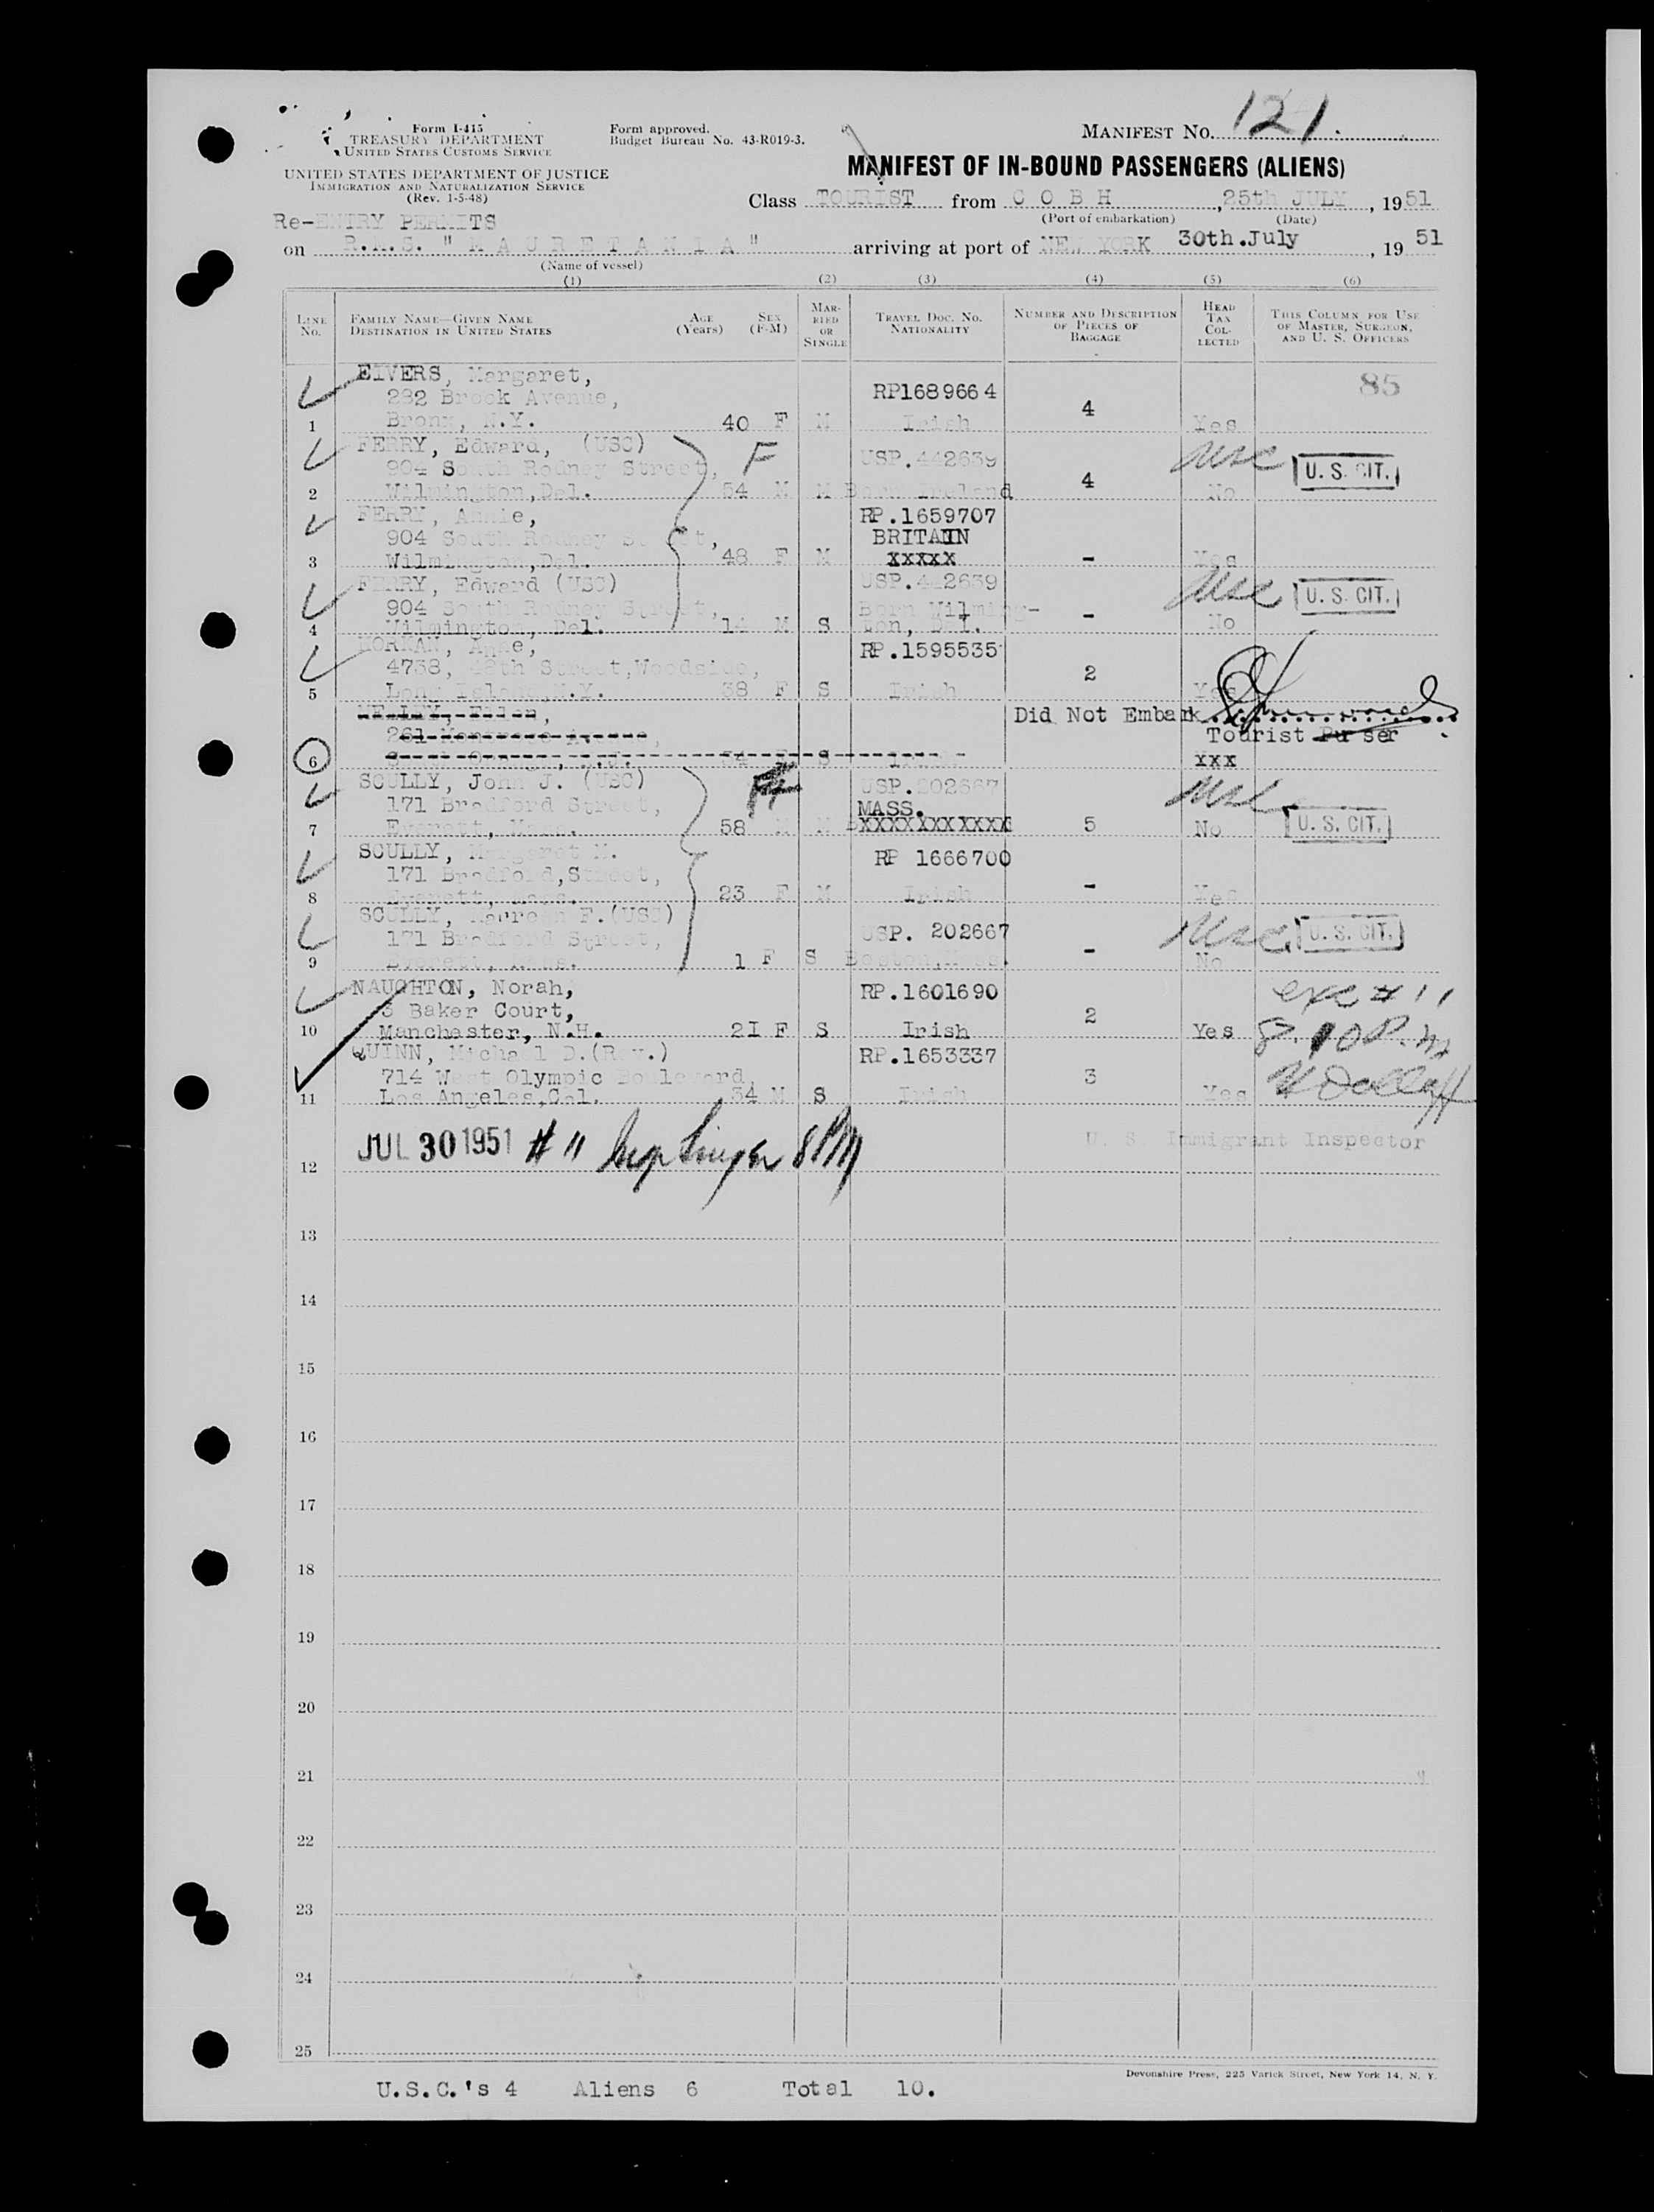 Form I-415
TREASURY DEPARTMENT
UNITED STATES CUSTOMS SERVICE
UNITED STATES DEPARTMENT OF JUSTICE
IMMIGRATION AND NATURALIZATION SERVICE
(Rev. 1-5-48)
Form approved.
Budget Bureau No. 43-R019-3.
MANIFEST NO. 121.
MANIFEST OF IN-BOUND PASSENGERS (ALIENS)
Class TOURIST from COBH, 25th JULY, 1951
(Port of embarkation) (Date)
Re-ENTRY PERMITS
on R.M.S. "MAURETANIA" arriving at port of NEW YORK 30th.July, 19 51
(Name of vessel)
(1) (2) (3) (4) (5) (6)
LINE No. FAMILY NAME—GIVEN NAME DESTINATION IN UNITED STATES AGE (Years) SEX (F-M) MARRIED OR SINGLE TRAVEL DOC. NO. NATIONALITY NUMBER AND DESCRIPTION OF PIECES OF BAGGAGE HEAD TAX COLLECTED THIS COLUMN FOR USE OF MASTER, SURGEON, AND U. S. OFFICERS
EIVERS, Margaret, RP1689664 85
282 Brook Avenue, 4
1 Bronx, N.Y. 40 F M Irish Yes
FERRY, Edward, (USC) F USP.442639 USC U. S. CIT.
904 South Rodney Street, 4
2 Wilmington,Del. 54 M M Born Ireland No
FERRY, Annie, RP.1659707
904 South Rodney Street, BRITAIN
3 Wilmington,Del. 48 F M XXXXX - Yes
FERRY, Edward (USC) USP.442639 USC U. S. CIT.
904 South Rodney Street, Born Wilming- -
4 Wilmington, Del. 14 M S ton, Del. No
Anne, RP.1595535
4738, 48th Street,Woodside, 2
5 Long Island,N.Y. 38 F S Irish Yes
Ellen, Did Not Embark
261 Avenue, Tourist Purser
6 34 S XXX
SCULLY, John J. (USC) USP.202667 USC
171 Bradford Street, MASS.
7 Everett, Mass. 58 M M XXXXXXXXXXXX 5 No U. S. CIT.
SCULLY, Margaret M. RP 1666700
171 Bradford,Street, -
8 Everett, Mass. 23 F M Irish Yes
SCULLY, Maureen F.(USC) USP. 202667 USC U. S. CIT.
171 Bradford Street, -
9 Everett, Mass. 1 F S Boston,Mass. No
NAUGHTON, Norah, RP.1601690 exc # 11
3 Baker Court, 2
10 Manchester, N.H. 21 F S Irish Yes
QUINN, Michael D.(Rev.) RP.1653337
714 West Olympic Boulevard, 3
11 Los Angeles,Cal. 34 M S Irish Yes
JUL 30 1951 # 11 8 PM U. S. Immigrant Inspector
12
13
14
15
16
17
18
19
20
21
22
23
24
25
Devonshire Press, 225 Varick Street, New York 14, N. Y.
U.S.C.'s 4 Aliens 6 Total 10.